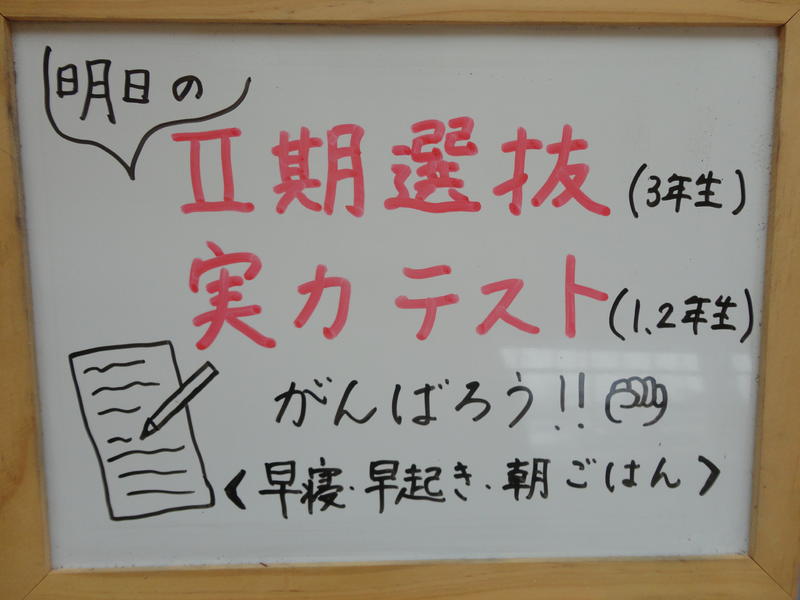 明日の
Ⅱ期選抜(3年生)
実力テスト(1、2年生)
がんばろう!!
<早寝・早起き・朝ごはん>